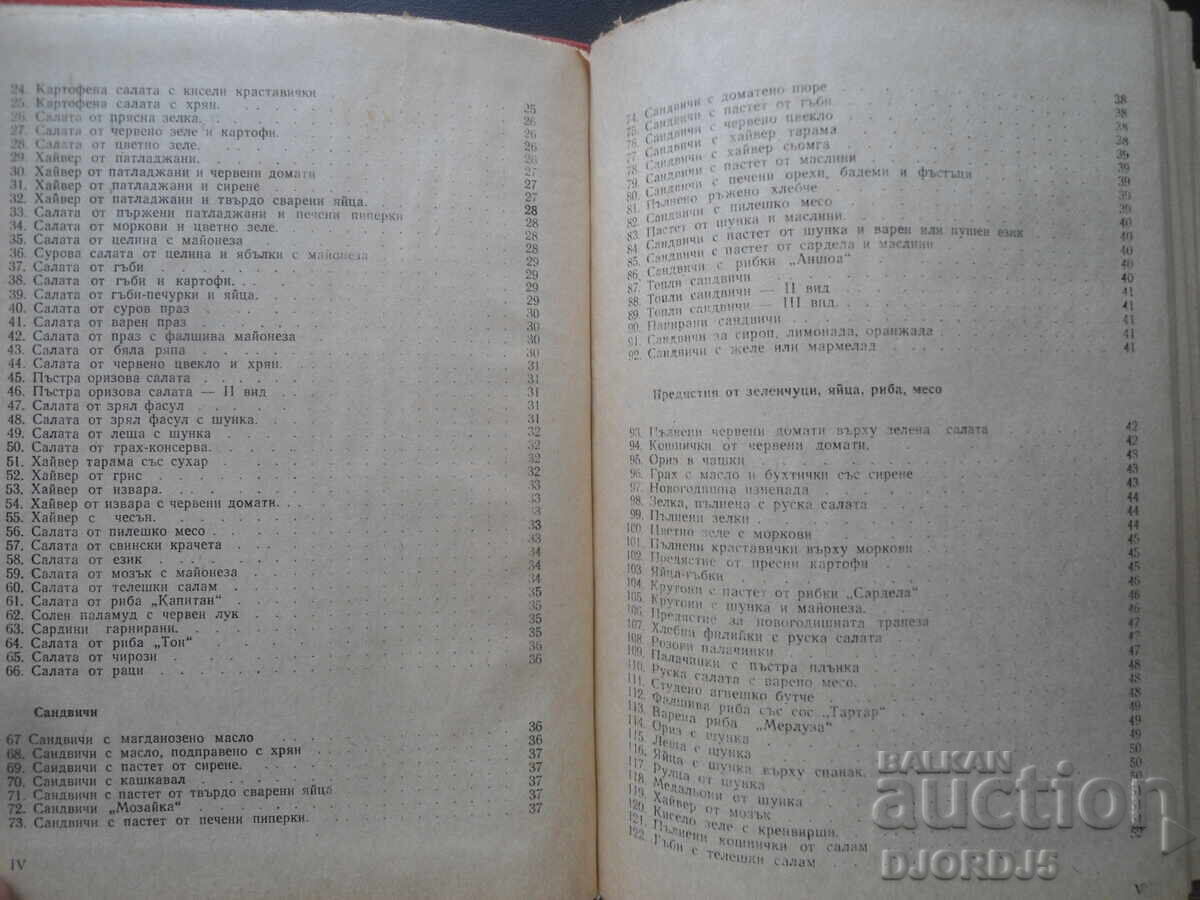 24. Картофена салата с кисели краставички
25. Картофена салата с хрян. 25
26. Салата от прясна зелка. 26
27. Салата от червено зеле и картофи. 26
28. Салата от цветно зеле. 26
29. Хайвер от патладжани. 26
30. Хайвер от патладжани и червени домати 27
31. Хайвер от патладжани и сирене 27
32. Хайвер от патладжани и твърдо сварени яйца. 27
33. Салата от пържени патладжани и печена пиперки 28
34. Салата от моркови и цветно зеле. 28
35. Салата от целина с майонеза 28
36. Сурова салата от целина и ябълки с майонеза 28
37. Салата от гъби 29
38. Салата от гъби и картофи. 29
39. Салата от гъби-печурки и яйца. 29
40. Салата от суров праз 30
41. Салата от варен праз 30
42. Салата от праз с фалшива майонеза 30
43. Салата от бяла ряпа 30
44. Салата от червено цвекло и хрян. 31
45. Пъстра оризова салата 31
46. Пъстра оризова салата — II вид 31
47. Салата от зрял фасул 31
48. Салата от зрял фасул с шунка. 31
49. Салата от леща с шунка 32
50. Салата от грах-консерва. 32
51. Хайвер тарама със сухар 32
52. Хайвер от грис 32
53. Хайвер от извара. 33
54. Хайвер от извара с червени домати. 3
55. Хайвер с чесън. 3
56. Салата от пилешко месо 33
57. Салата от свински крачета 33
58. Салата от език 34
59. Салата от мозък с майонеза 34
60. Салата от телешки салам 34
61. Салата от риба „Капитан“ 35
62. Солен паламуд с червен лук 35
63. Сардини гарнирани. 35
64. Салата от риба „Тон“ 36
65. Салата от чирози 36
66. Салата от раци
Сандвичи
67 Сандвичи с магданозено масло 36
68. Сандвичи с масло, подправено с хрян 36
69. Сандвичи с пастет от сирене. 37
70. Сандвичи с кашкавал 37
71. Сандвичи с пастет от твърдо сварени яйца 37
72. Сандвичи „Мозайка“ 37
73. Сандвичи с пастет от печени пиперки. 37
IV
74. Сандвичи с доматено пюре 38
75. Сандвичи с пастет от гъби 38
76. Сандвичи с червено цвекло 38
77. Сандвичи с хайвер тарама 38
78. Сандвичи с хайвер сьомга 39
79. Сандвичи с пастет от маслини 39
80. Сандвичи с печени орехи, бадеми и фъстъци 39
81. Пълнено ръжено хлебче 39
82. Сандвичи с пилешко месо 39
83. Пастет от шунка и маслини. 40
84. Сандвичи с пастет от шунка и варен или пушен език 40
85. Сандвичи с пастет от сардела и маслини 40
86. Сандвичи с рибки „Аншоа“ 40
87. Топли сандвичи 41
88. Топли сандвичи — II вид 41
89. Топли сандвичи — III вид. 41
90. Панирани сандвичи 41
91. Сандвичи за сироп, лимонада, оранжада
92. Сандвичи с желе или мармелад
Предястия от зеленчуци, яйца, риба, месо
93. Пълнени червени домати върху зелена салата 42
94. Кошнички от червени домати. 42
95. Ориз в чашки 43
96. Грах с масло и бухтички със сирене 43
97. Новогодишна изненада 43
98. Зелка, пълнена с руска салата 44
99. Пълнени зелки 44
100. Цветно зеле с моркови 44
101. Пълнени краставички върху моркови 45
102. Предястие от пресни картофи 45
103. Яйца-гъбки 45
104. Крутони с пастет от рибки „Сардела“ 46
105. Крутони с шунка и майонеза. 46
106. Предястие за новогодишната трапеза 46
107. Хлебни филийки с руска салата 47
108. Розови палачинки 47
109. Палачинки с пъстра плънка 48
110. Руска салата с варено месо. 48
111. Студено агнешко бутче 48
112. Фалшива риба със сос „Тартар“ 49
113. Варена риба „Мерлуза“ 49
114. Ориз с шунка 50
115. Леща с шунка 50
116. Яйца с шунка върху спанак.
117. Рулца от шунка
118. Медальони от шунка
119. Хайвер от мозък
120. Кисело зеле с кренвирши.
121. Пълнени кошнички от салам
122. Гъби с телешки салам
V
BALKAN
auction
DJORDJ5